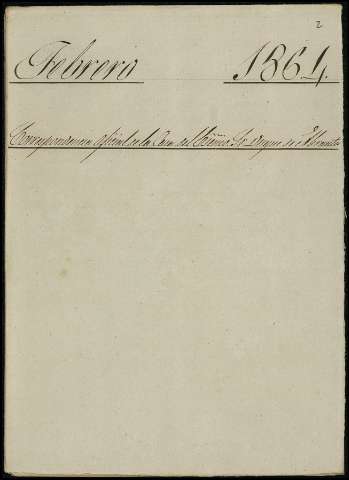 2
Febrero 1864.
Correspondencia oficial de la Casa del Excmo. Sr. Duque de Abrantes